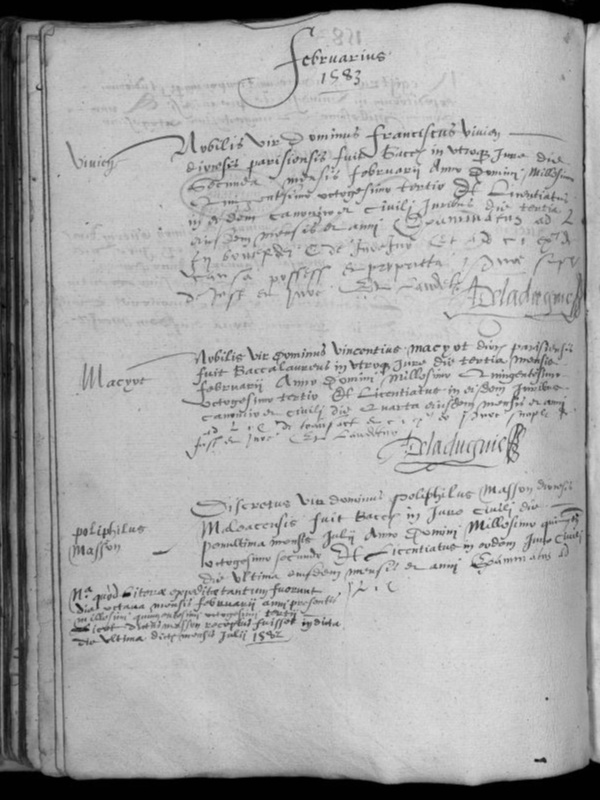 Februarius
1583
Vivien
Nobilis vir Dominus Franciscus Vivien
diocesis parisiensis fuit Bacch in utroq Jure die
Secunda mensis februarii Anno Domini Millesimo
quingentesimo octogesimo tertio Et Licentiatus
in eisdem canonico et Civili Juribus die tertia
eiusdem mensis et anni Examinatus ad L
causa possess et propriet
Et Laudetur Deladugnie
Macyot
Nobilis vir Dominus vincentius macyot dioc parisiensis
fuit Baccalaureus in utroq Jure die tertia mensis
februarii Anno Domini Millesimo Quingentesimo
octogesimo tertio Et Licentiatus in eisdem Juribus
canonico et Civili die Quarta eiusdem mensis et anni
ad L C de transact et C
et Laudetur
Deladugnie
poliphilus
Masson
Discretus vir dominus poliphilus Masson diocesis
Maleacensis fuit Bacch in Jure Civili die
penultima mensis Julii Anno Domini Millesimo quing
octogesimo secundo Et Licentiatus in eodem Jure Civili
die ultima eiusdem mensis et anni Examinatus ad
L C
Na quod Literae expeditae tantum fuerunt
die octava mensis februarii anni presentis
millesimi quingentesimi octogesimi tertii
Licet dictus masson receptus fuisset in dicta
die ultima dicti mensis Julii 1582